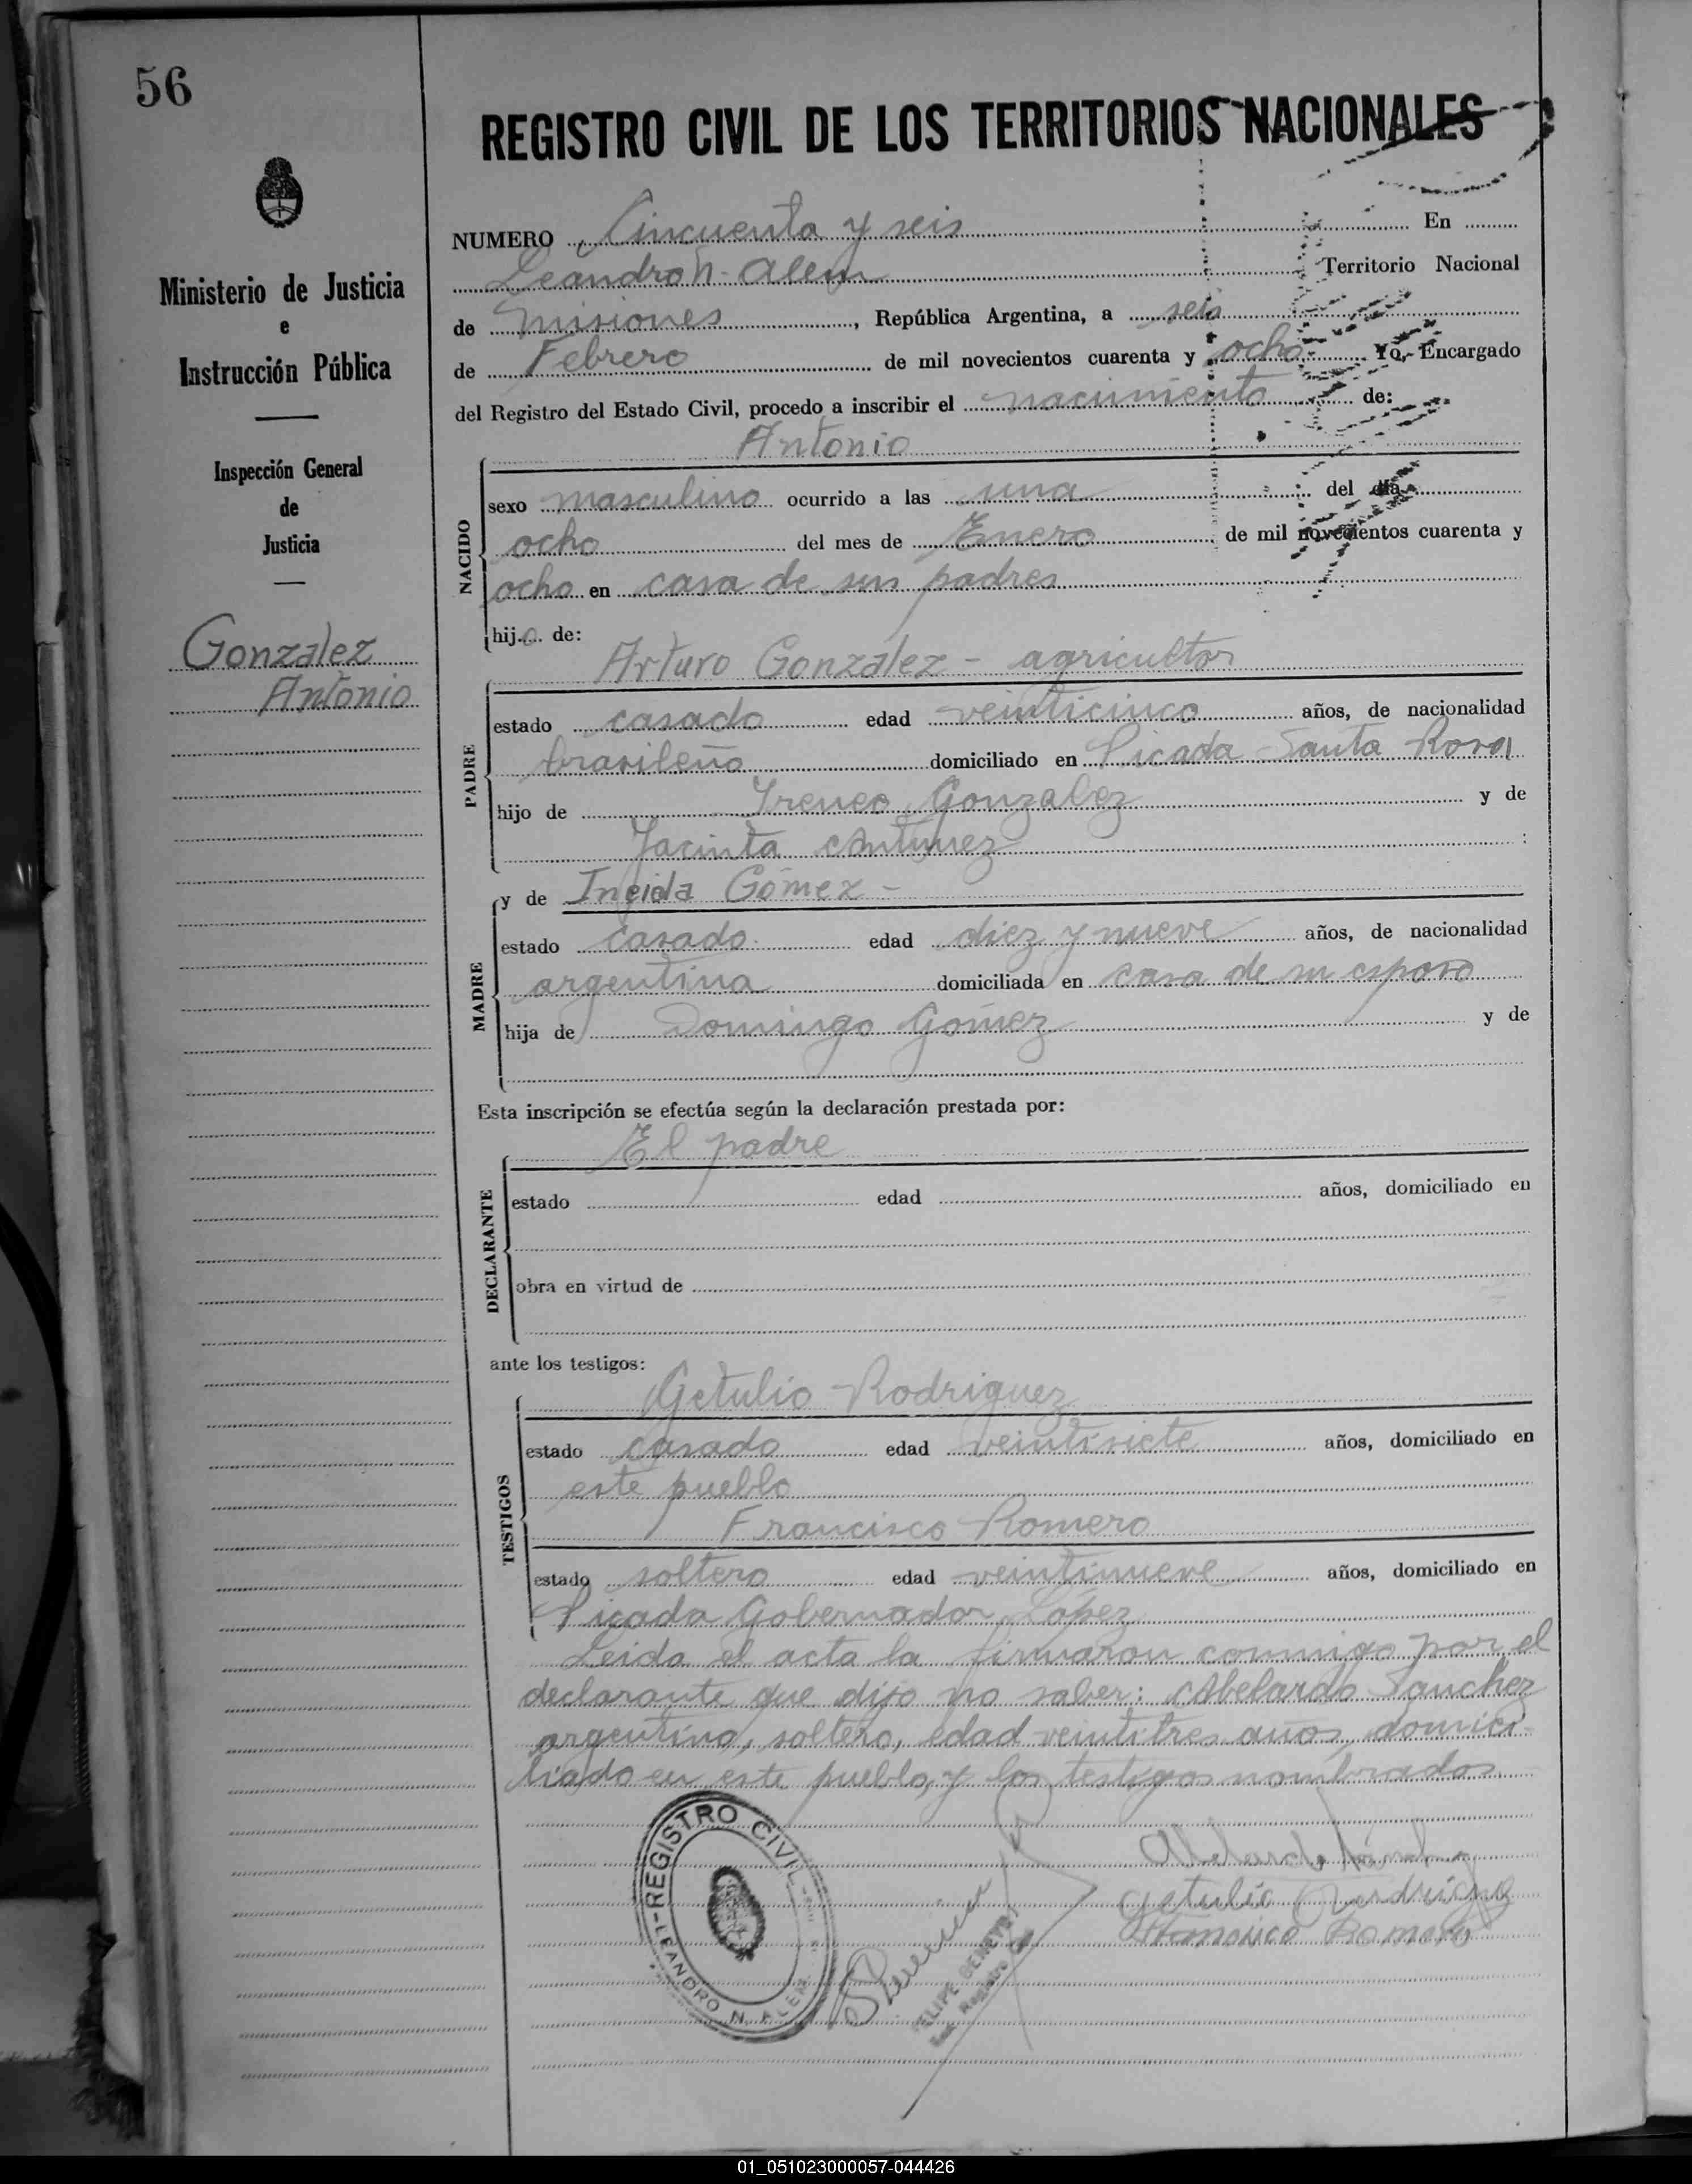 56
REGISTRO CIVIL DE LOS TERRITORIOS NACIONALES
Ministerio de Justicia
e
Instrucción Pública
Inspección General
de
Justicia
Gonzalez
Antonio
NUMERO Cincuenta y seis En
Leandro N. Alem Territorio Nacional
de Misiones, República Argentina, a seis
de Febrero de mil novecientos cuarenta y ocho Yo, Encargado
del Registro del Estado Civil, procedo a inscribir el nacimiento de:
Antonio
NACIDO
sexo masculino ocurrido a las una del día
ocho del mes de Enero de mil novecientos cuarenta y
ocho en casa de sus padres
hijo de:
Arturo Gonzalez - agricultor
PADRE
estado casado edad veinticinco años, de nacionalidad
brasileño domiciliado en Picada Santa Rosa
hijo de Ireneo Gonzalez y de
Jacinta Antunez :
y de Gómez -
MADRE
estado casado edad diez y nueve años, de nacionalidad
argentina domiciliada en casa de su esposo
hija de Domingo Gómez y de
Esta inscripción se efectúa según la declaración prestada por:
El padre
DECLARANTE
estado edad años, domiciliado en
obra en virtud de
ante los testigos:
Getulio Rodriguez
TESTIGOS
estado casado edad veintisiete años, domiciliado en
este pueblo
Francisco Romero
estado soltero edad veintinueve años, domiciliado en
Picada Gobernador Lopez
Leida el acta la firmaron conmigo por el
declarante que dijo no saber: Abelardo Sanchez
argentino, soltero, edad veintitres años, domici-
liado en este pueblo, y los testigos nombrados.
REGISTRO CIVIL
LEANDRO N. ALEM
Getulio Rodriguez
Francisco Romero
01_051023000057-044426